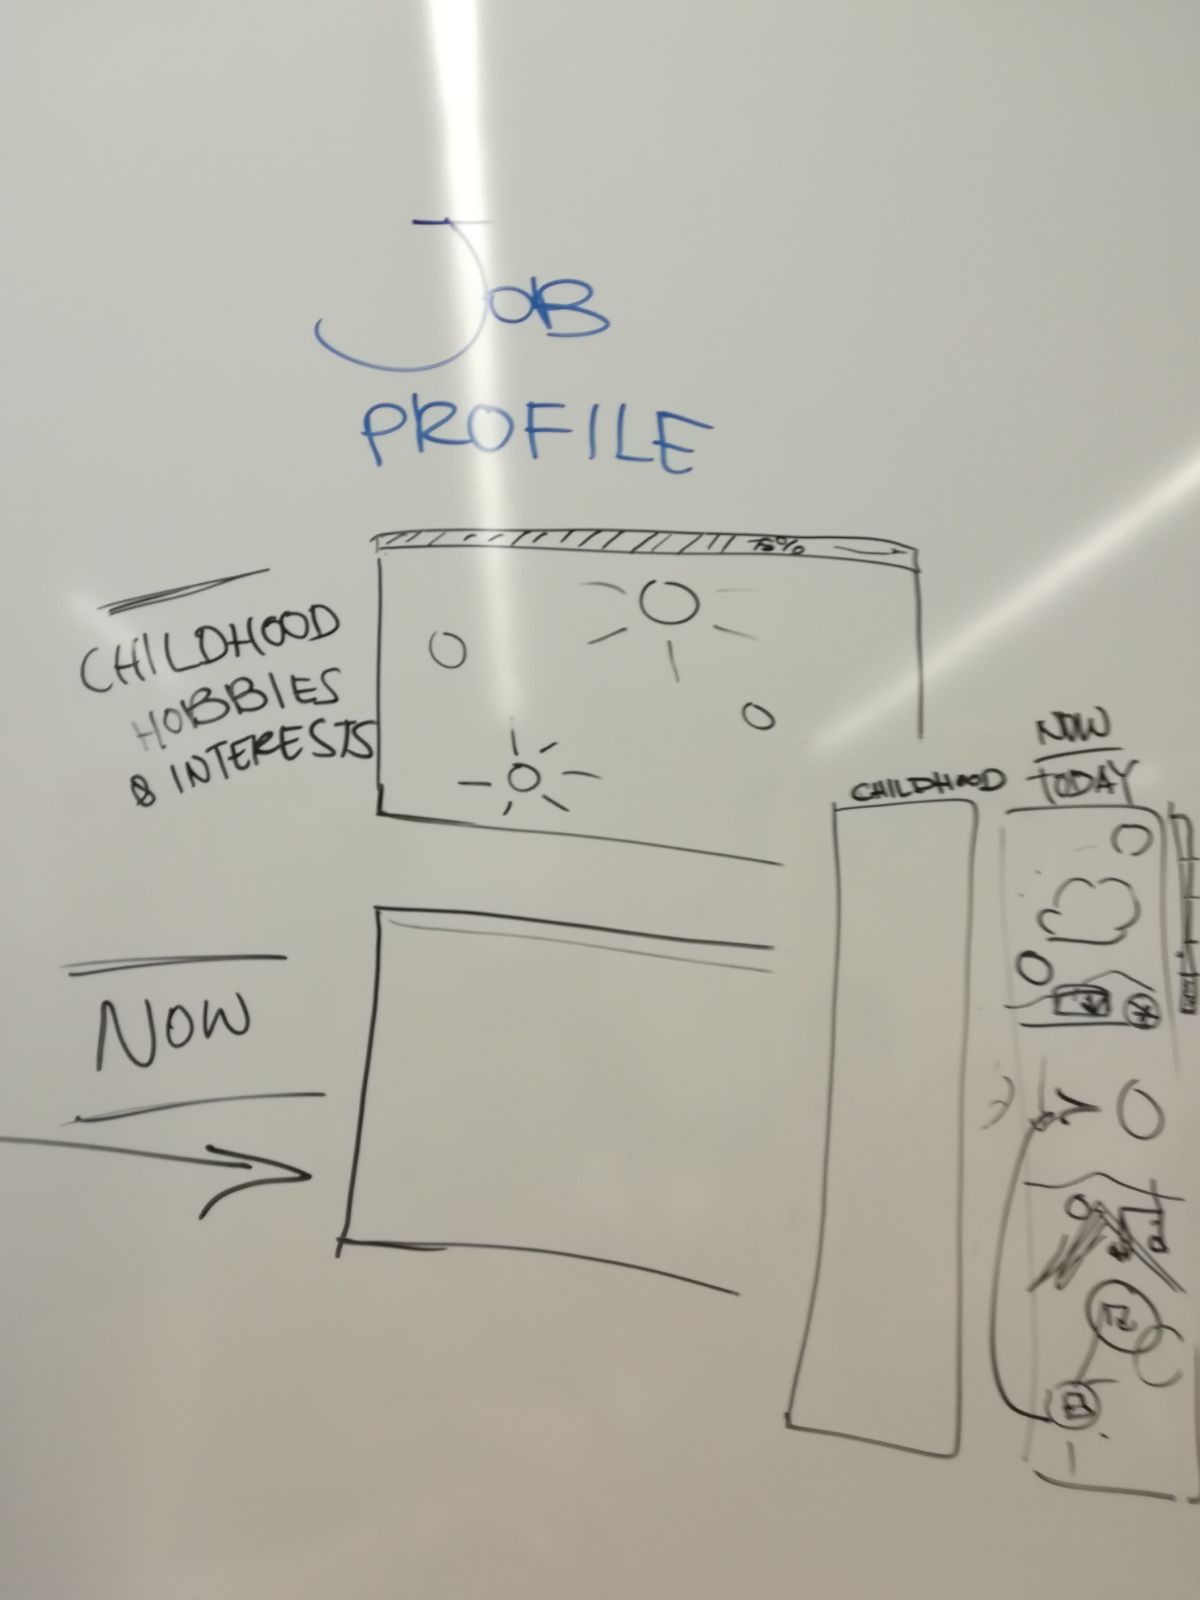 JOB
PROFILE
75%
CHILDHOOD
HOBBIES
& INTERESTS
NOW
CHILDHOOD
NOW
TODAY